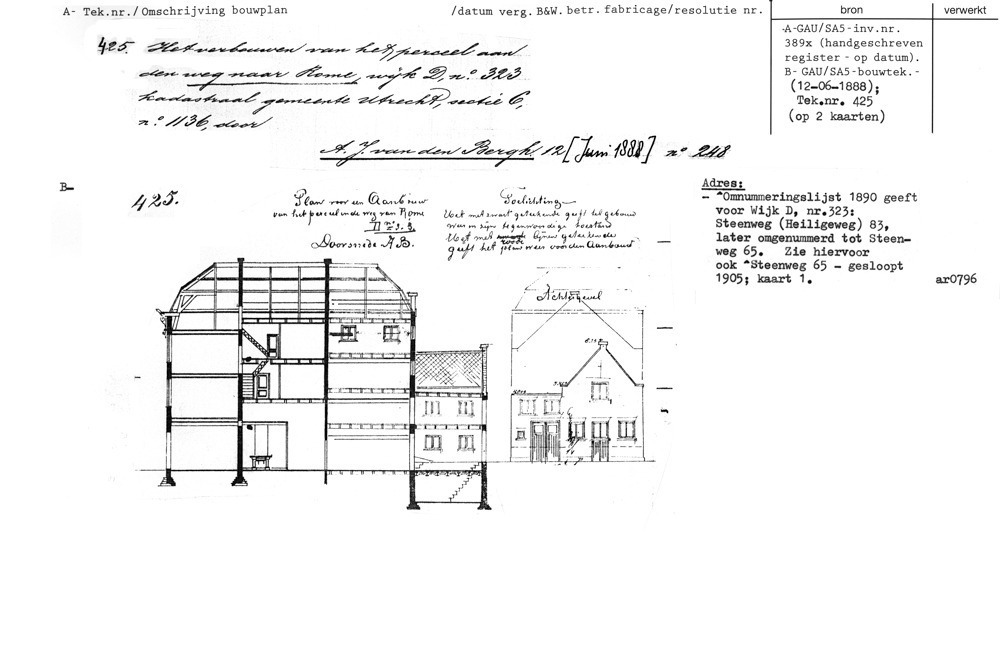 A- Tek.nr./Omschrijving bouwplan /datum verg. B&W. betr. fabricage/resolutie nr. bron verwerkt
425. Het verbouwen van het perceel aan
den weg naar Rome, wijk D, nº 323
kadastraal gemeente Utrecht, sectie C,
nº 1136, door
A. J. van den Bergh. 12 [Juni 1888] nº 248
-A-GAU/SA5-inv.nr.
389x (handgeschreven
register - op datum).
B- GAU/SA5-bouwtek.-
(12-06-1888);
Tek.nr. 425
(op 2 kaarten)
B-
425.
Plan voor een Aanbouw
van het perceel in de weg van Rome
Doorsnede A.B.
Toelichting
Het met zwart geteekende geeft het gebouw
weer in zijn tegenwoordige toestand
Het met roode lijnen geteekende
geeft het weer voor den Aanbouw
Achtergevel
Adres:
- ^Omnummeringslijst 1890 geeft
voor Wijk D, nr.323:
Steenweg (Heiligeweg) 83,
later omgenummerd tot Steen-
weg 65. Zie hiervoor
ook ^Steenweg 65 - gesloopt
1905; kaart 1.
ar0796